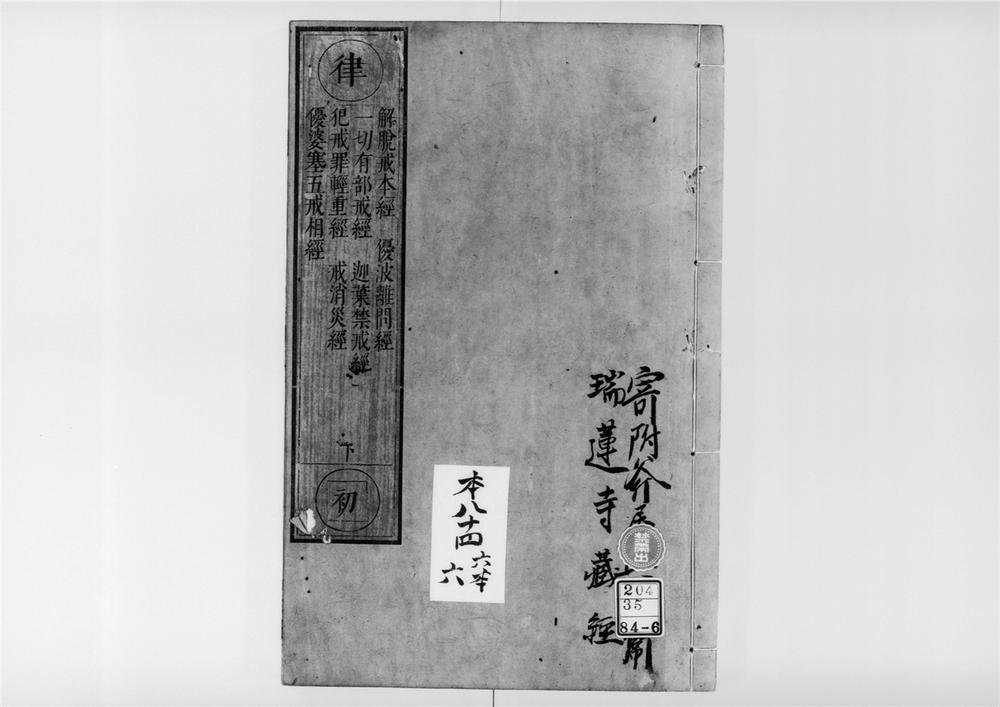 寄附
瑞蓮寺藏經
禁帶出
204
35
84-6
本八十四
六本
六
律
解脫戒本經 優波離問經
一切有部戒經 迦葉禁戒經
犯戒罪輕重經 戒消災經
優婆塞五戒相經
下
初